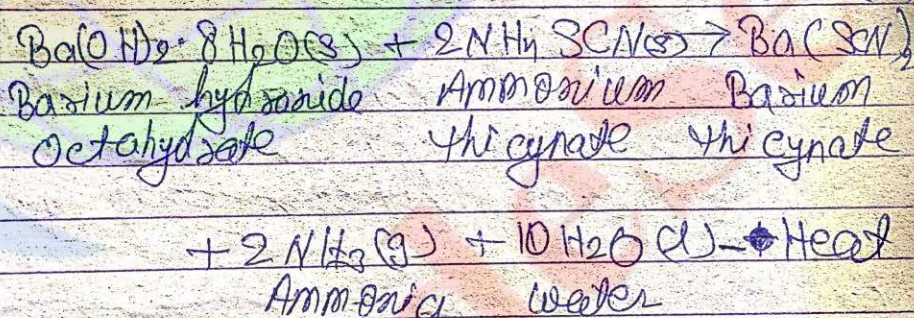 Ba(OH)2·8H2O(s) + 2NH4SCN(s) → Ba(SCN)2
Barium hydroxide Ammonium Barium
Octahydrate thicynate thicynate
+ 2NH3(g) + 10H2O(l) - Heat
Ammonia water